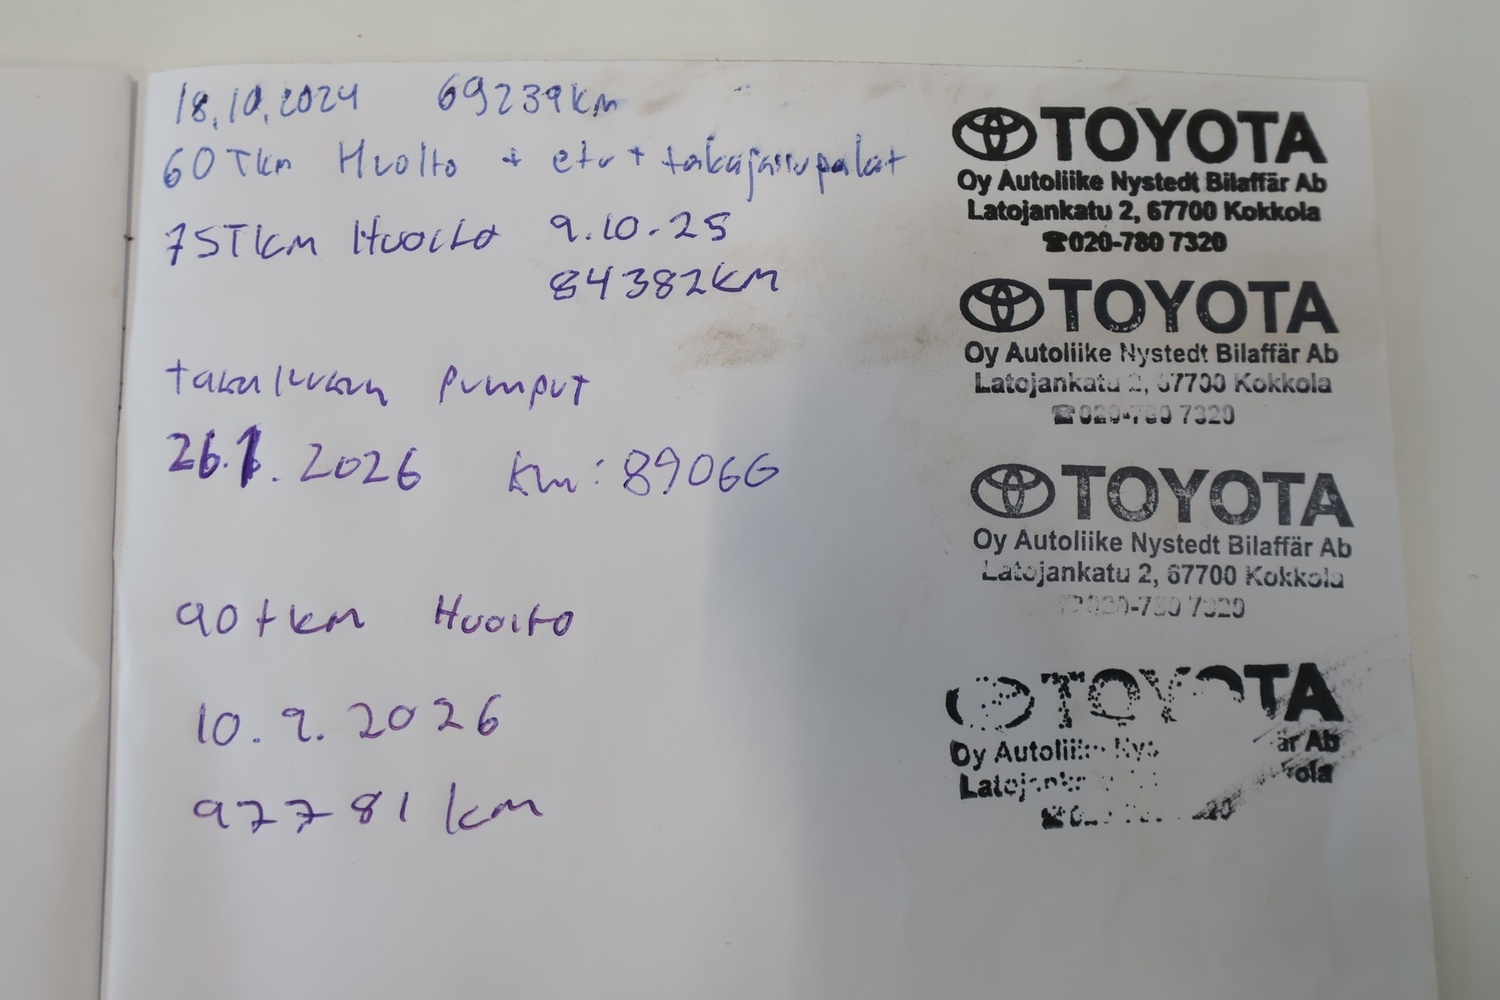 18.10.2024 69239km
60Tkm Huolto + etu + takajarrupalat
75Tkm Huolto 9.10.25
84382km
takaluukun pumput
26.1.2026 km: 89066
90tkm Huolto
10.9.2026
97781 km
TOYOTA
Oy Autoliike Nystedt Bilaffär Ab
Latojankatu 2, 67700 Kokkola
☎020-780 7320
TOYOTA
Oy Autoliike Nystedt Bilaffär Ab
Latojankatu 2, 67700 Kokkola
☎020-780 7320
TOYOTA
Oy Autoliike Nystedt Bilaffär Ab
Latojankatu 2, 67700 Kokkola
☎020-780 7320
TOYOTA
Oy Autoliike Ab